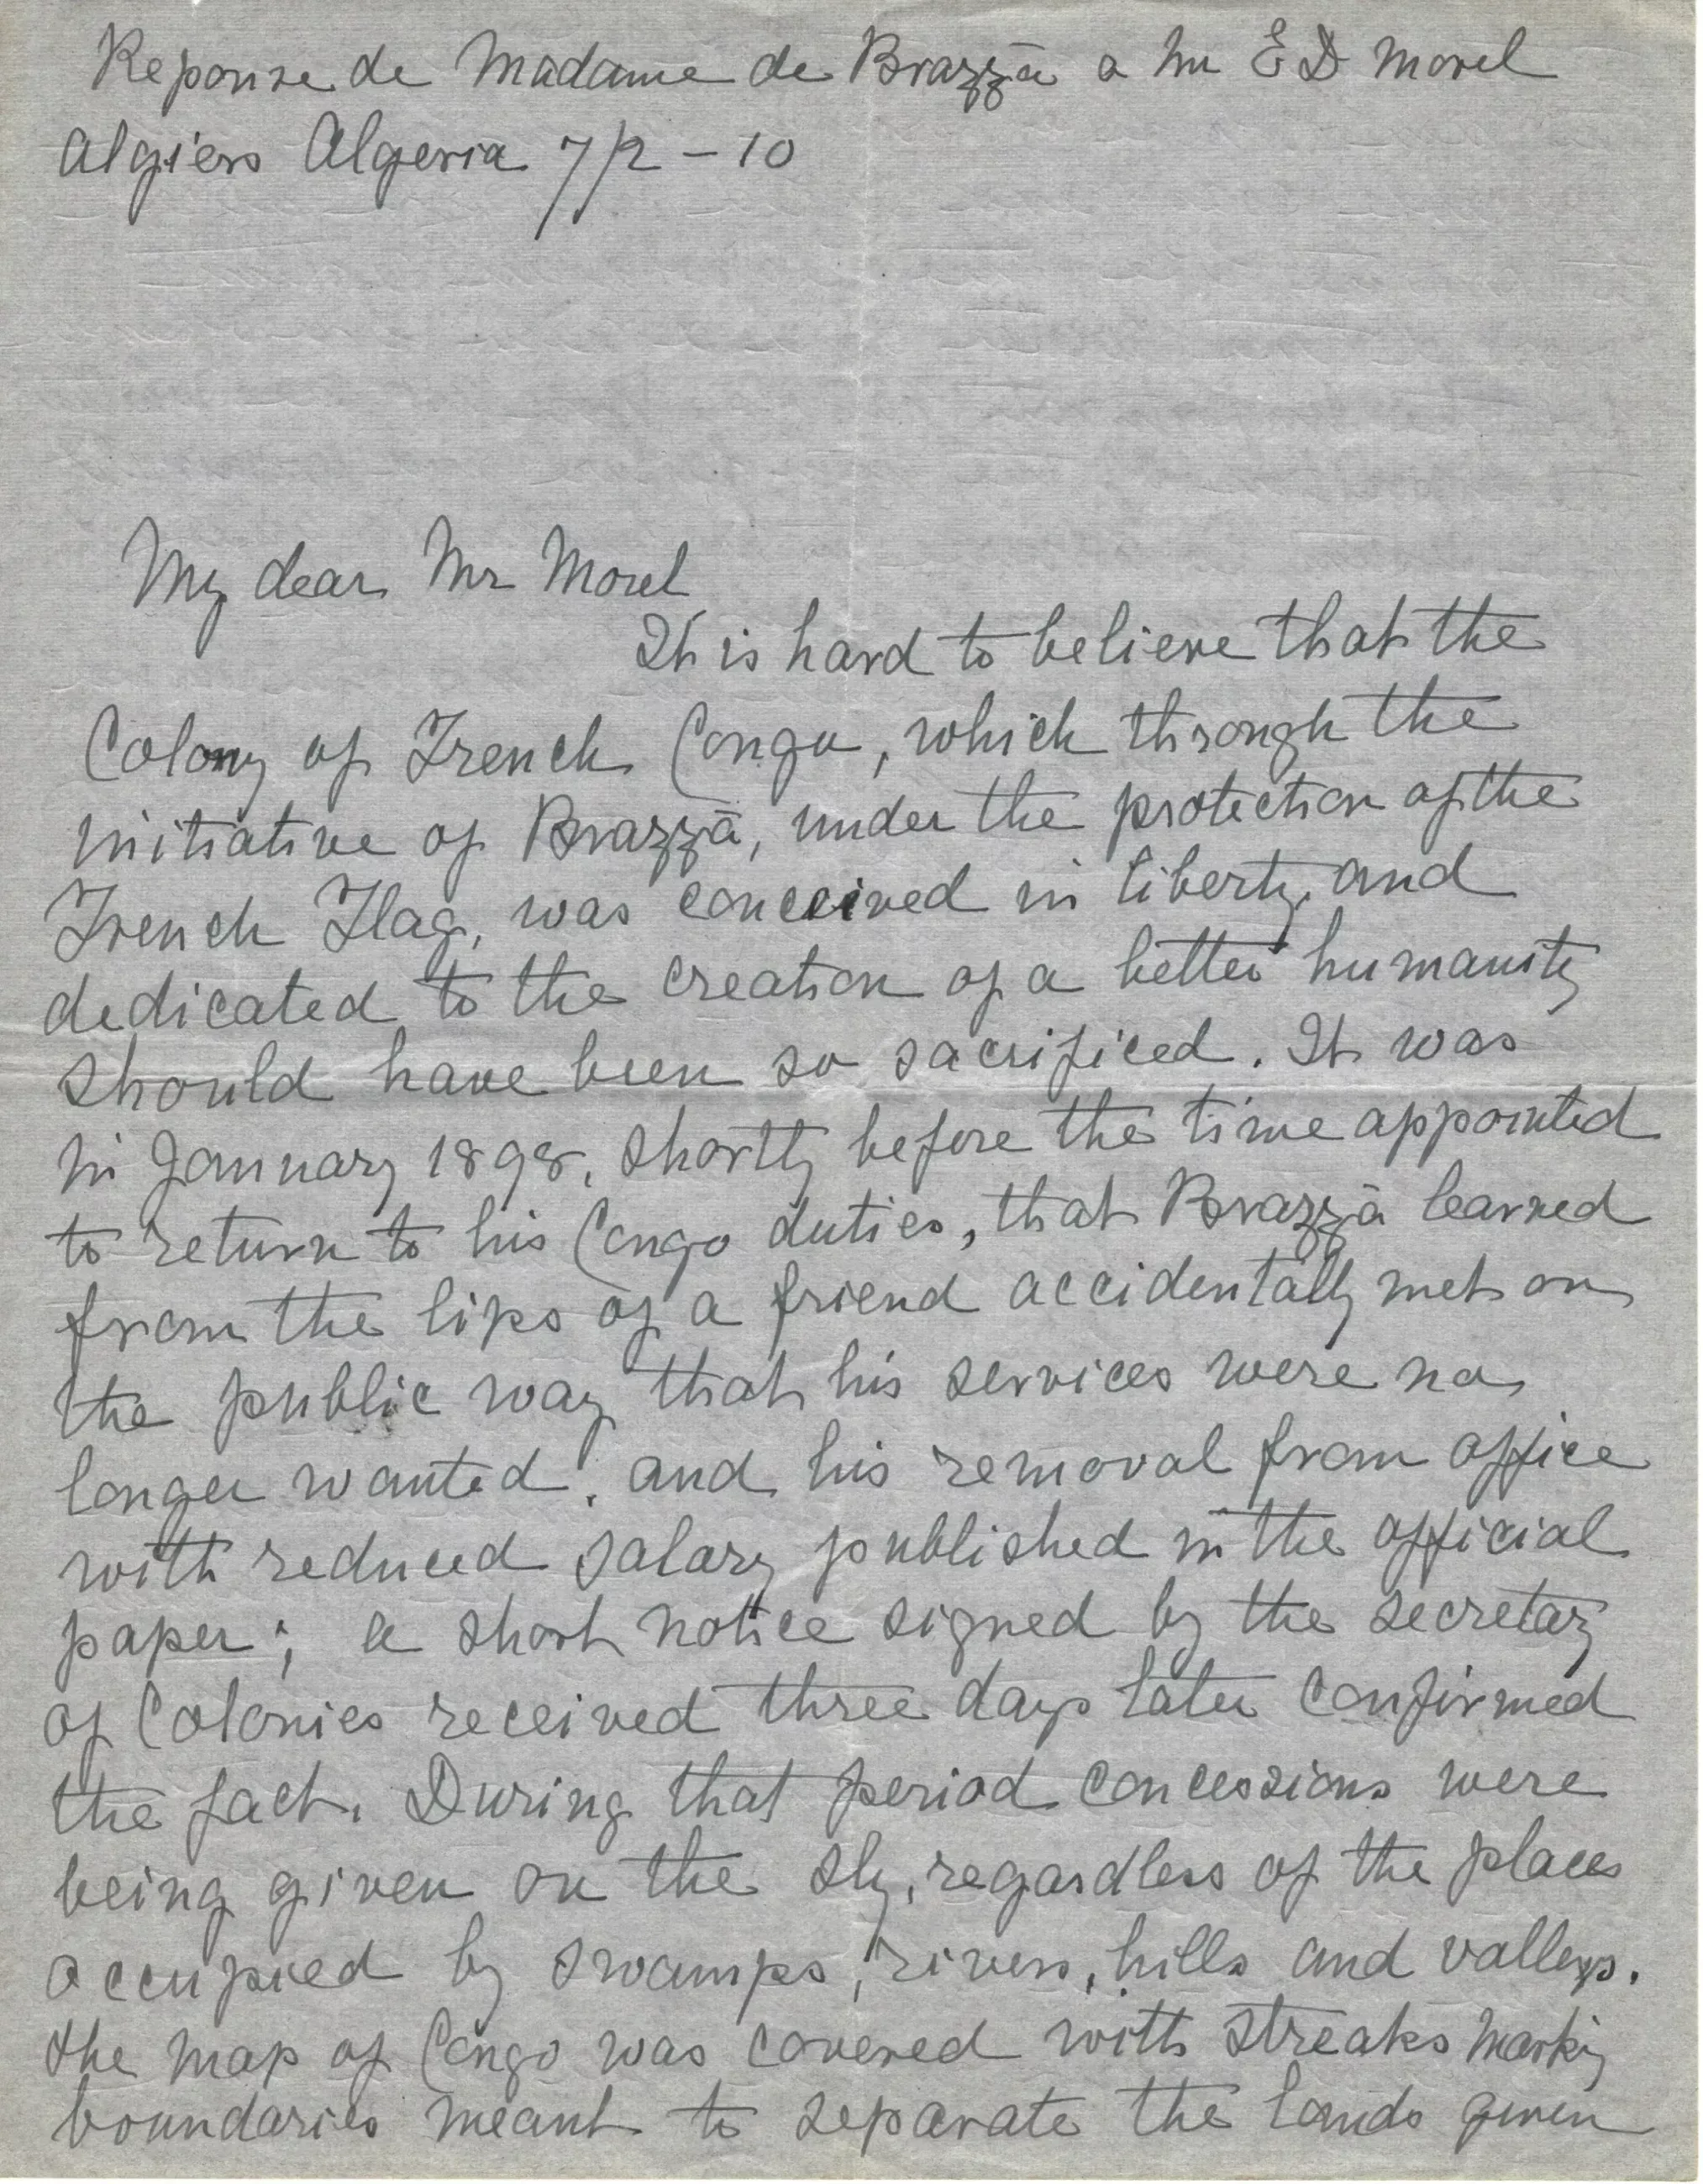 Reponse de Madame de Brazzà a Mr E D Morel
Algiers Algeria 7/2 - 10
My dear Mr Morel
It is hard to believe that the
Colony of French Congo, which through the
initiative of Brazzà, under the protection of the
French Flag, was conceived in liberty, and
dedicated to the creation of a better humanity
should have been so sacrificed. It was
in January 1898, shortly before the time appointed
to return to his Congo duties, that Brazzà learned
from the lips of a friend accidentally met on
the public way that his services were no
longer wanted. and his removal from office
with reduced salary published in the official
paper; a short notice signed by the secretary
of Colonies received three days later confirmed
the fact. During that period concessions were
being given on the sly, regardless of the places
occupied by swamps, rivers, hills and valleys.
the map of Congo was covered with streaks marking
boundaries meant to separate the lands given